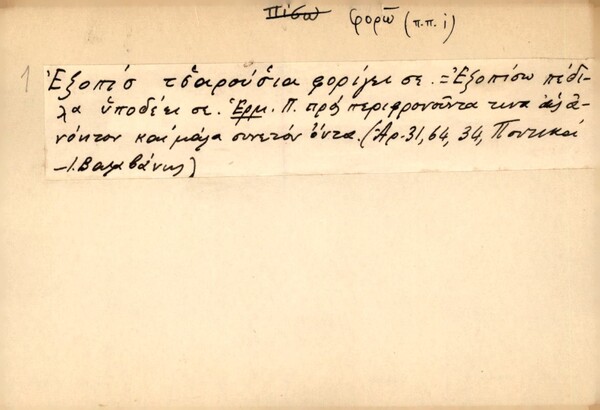 Πίσω φορῶ (π.π. ι)
1 Ἐξοπίσ τσ̌αρούσ̌ια φορίζει σε. = Ἐξοπίσω πέδι-
λα ὑποδέει σε. Ἑρμ. Π. πρός περιφρονοῦντα τινα ὡς ἀ-
νόητον καί μάλα συνετόν ὄντα. (Ἀρ. 31, 64, 34, Ποντικαί
– Ι. Βαλαβάνης)